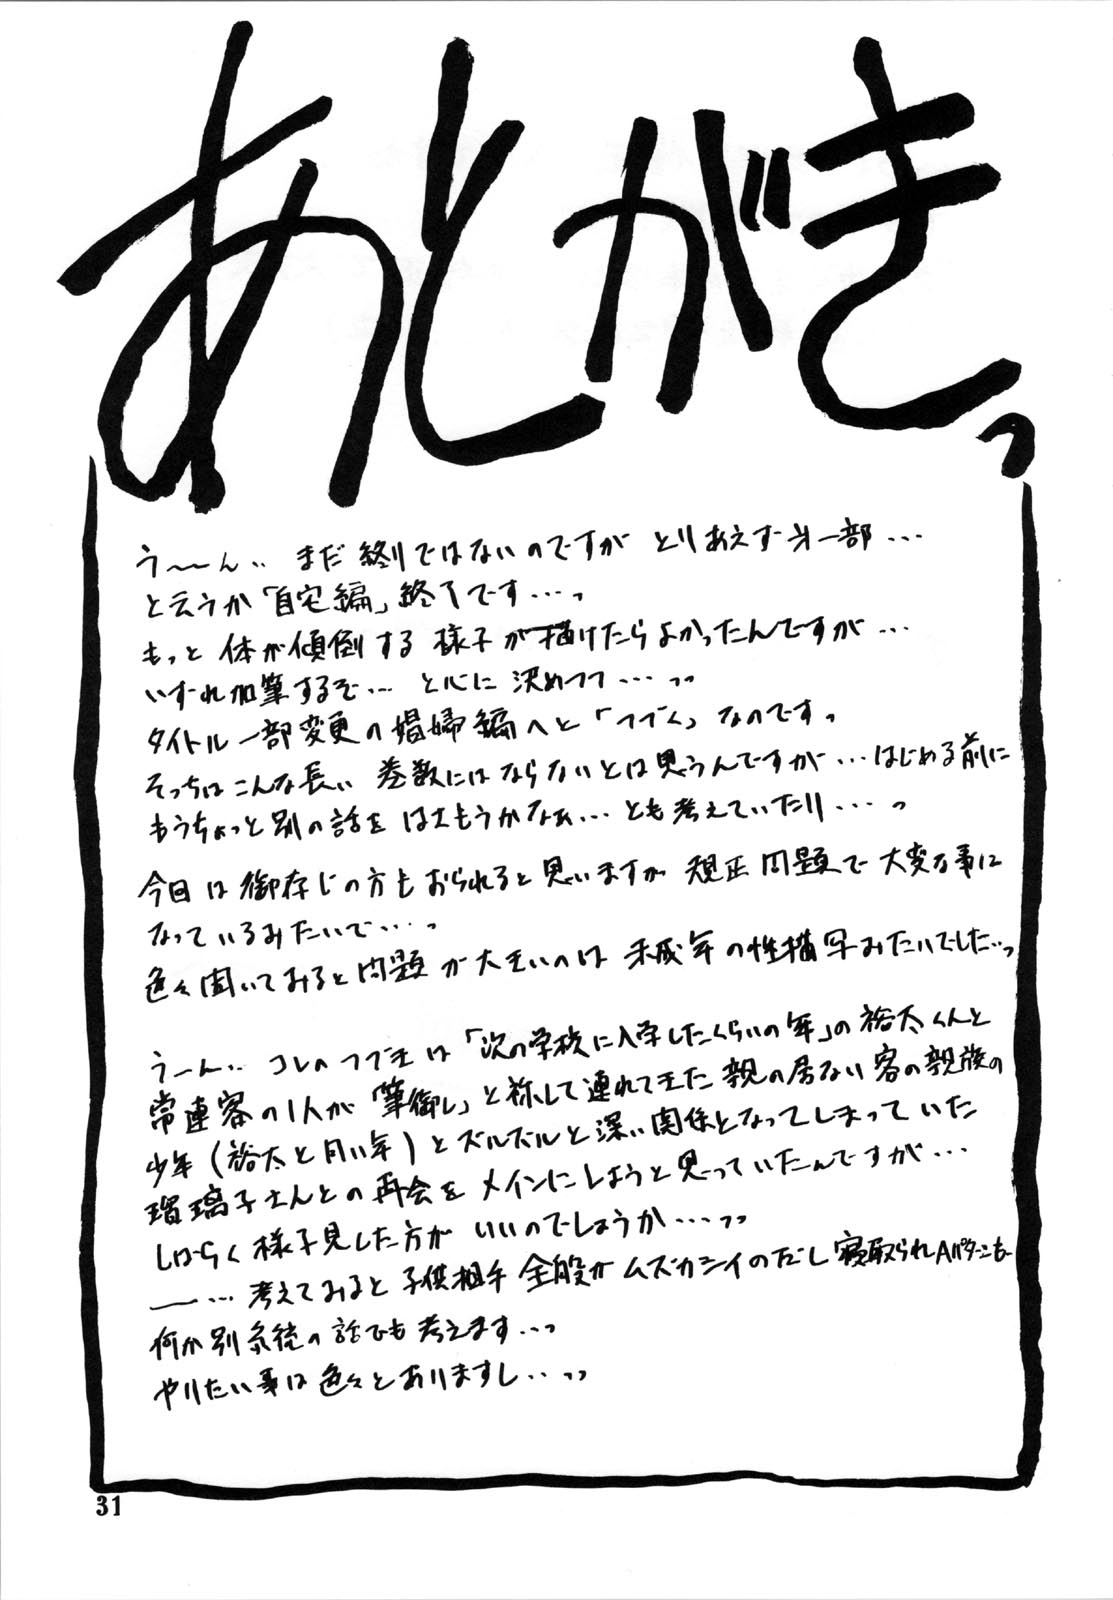 あとがきっ
う〜〜ん‥ まだ終りではないのですが とりあえず第一部…
と云うか「自宅編」終了です…っ
もっと 体が傾倒する 様子が描けたらよかったんですが…
いずれ加筆するぞ… と心に 決めつつ…っっ
タイトル一部変更の娼婦編へと「つづく」なのですっ
そっちはこんな長い 巻数にはならないとは思うんですが…はじめる前に
もうちょっと別の話を はさもうかなぁ…とも考えていたり…っ
今回は御存じの方もおられると思いますが 規正問題で大変な事に
なっているみたいで…っ
色々聞いてみると問題が大きいのは 未成年の性描写みたいでした‥っ
うーん‥ コレのつづきは「次の学校に入学したくらいの年」の裕太くんと
常連客の1人が「筆御し」と称して連れてきた 親の居ない客の親族の
少年(裕太と同い年)とズルズルと深い関係となってしまっていた
瑠璃子さんとの再会を メインにしようと思っていたんですが…
しばらく様子見した方が いいのでしょうか…っっ
ー…考えてみると 子供相手 全般がムズカシイのだし 寝取られAパターンも
何か別系統の話でも考えます…っ
やりたい事は色々とありますし‥っっ
31